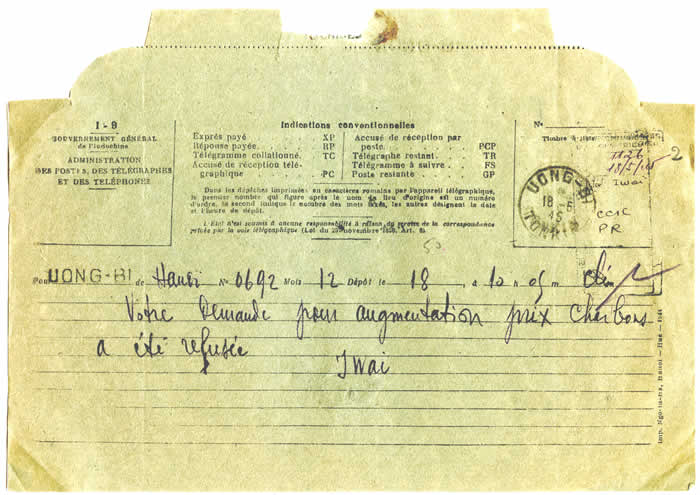 I - 9
GOUVERNEMENT GÉNÉRAL
de l'Indochine
ADMINISTRATION
DES POSTES, DES TÉLÉGRAPHES
ET DES TÉLÉPHONES
Indications conventionnelles
Exprès payé XP
Réponse payée. RP
Télégramme collationné. TC
Accusé de réception télé-
graphique PC
Accusé de réception par
poste. PCP
Télégraphe restant. TR
Télégramme à suivre. FS
Poste restante GP
Dans les dépêches imprimées en caractères romains par l'appareil télégraphique,
le premier nombre qui figure après le nom du lieu d'origine est un numéro
d'ordre, le second indique le nombre des mots taxés, les autres désignent la date
et l'heure de dépôt.
L'État n'est soumis à aucune responsabilité à raison du service de la correspondance
privée par la voie télégraphique (Loi du 29 novembre 1850, Art. 6).
No
Timbre à date
1126
18/5/45
Iwai
CCIC
PR
2
UONG-BI
18 - 5
45
TONKIN
50
Pour UONG-BI de Hanoi No 0692 Mots 12 Dépôt le 18 à 10 h 05 m
Votre Demande pour augmentation prix charbons
a été refusée Iwai
Imp. Ngo-tu-Ha, Hanoi — Hue — 1944